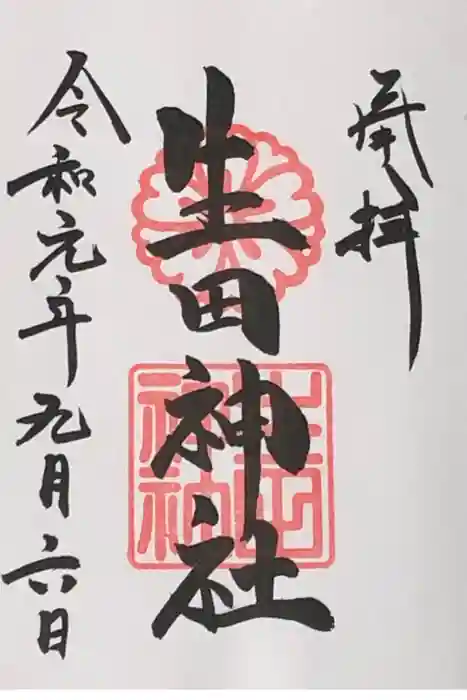 奉拝
生田神社
令和元年九月六日
生田
神社